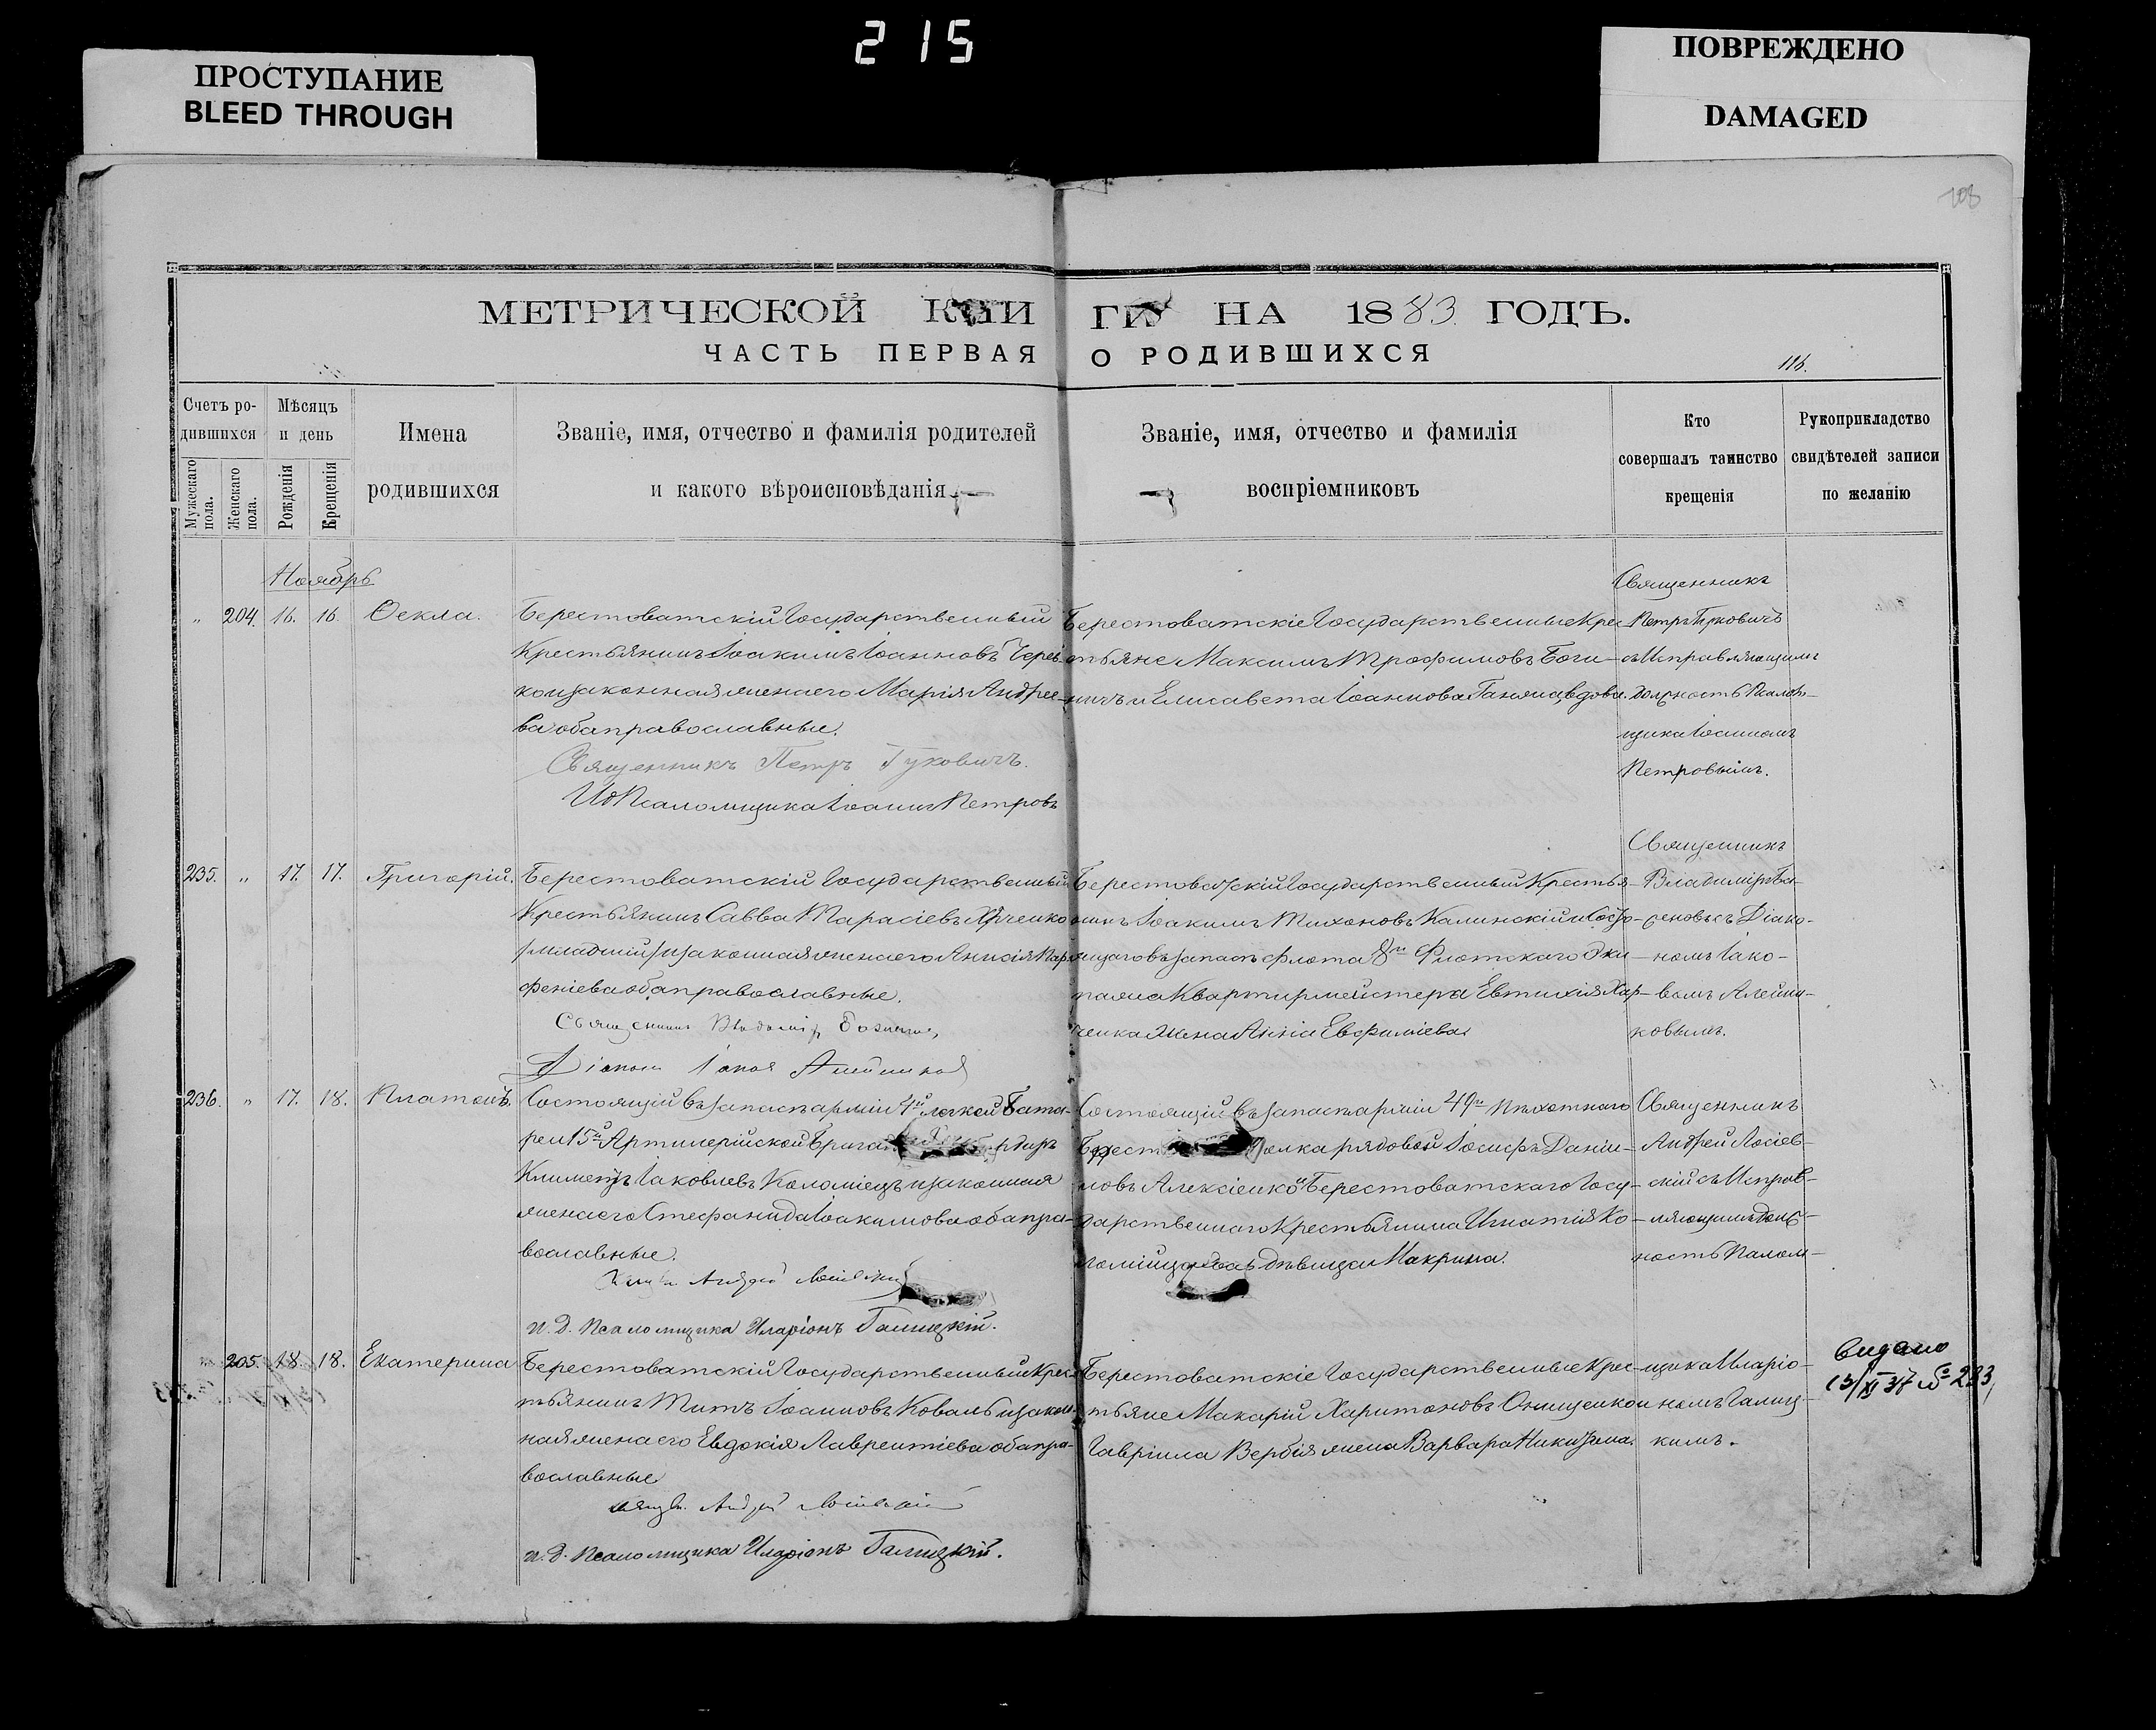 215
ПРОСТУПАНИЕ
BLEED THROUGH
ПОВРЕЖДЕНО
DAMAGED
108
МЕТРИЧЕСКОЙ КНИГИ НА 1883 ГОДЪ.
ЧАСТЬ ПЕРВАЯ О РОДИВШИХСЯ
116.
Счетъ ро-
дившихся
Мужескаго пола.
Женскаго пола.
Мѣсяцъ
и день
Рожденія
Крещенія
Имена
родившихся
Званіе, имя, отчество и фамилія родителей
и какого вѣроисповѣданія
Званіе, имя, отчество и фамилія
воспріемниковъ
Кто
совершалъ таинство
крещенія
Рукоприкладство
свидѣтелей записи
по желанію
Ноябрь
" 204. 16. 16. Ѳекла.
Берестоватскій Государственный
Крестьянинъ Іоакимъ Іоанновъ
законная жена его Марія Андрее-
ва оба православные.
Священникъ Петръ Гуковичъ.
ИД Псаломщика Іоаннъ Петровъ
Берестоватскіе Государственные Крес-
тьяне Максимъ Трофимовъ
и Елисавета Іоаннова вдова.
Священникъ
Петръ Гуковичъ
съ Исправляющимъ
должность Псалом-
щика Іоанномъ
Петровымъ.
235. " 17. 17. Григорій.
Берестоватскій Государственный
Крестьянинъ Савва Тарасіевъ
/младшій/ и законная жена его Анисія Пар-
феніева оба православные.
Священникъ Владиміръ
Діаконъ Іаковъ Алейниковъ
Берестоватскій Государственный Крестья-
нинъ Іоакимъ Тихоновъ Калинскій и Состо-
ящаго въ запасѣ флота 8го Флотскаго Эки-
пажа Квартирмейстера Евтихія Хар-
ченка жена Анна Евфиміева
Священникъ
Владиміръ
съ Діако-
номъ Іако-
вомъ Алейни-
ковымъ.
236. " 17. 18. Платонъ.
Состоящій въ запасѣ арміи 4й легкой Бата-
реи 15й Артилерійской
Климентъ Іаковлевъ Коломіецъ и законная
жена его Стефанида Іоакимова оба пра-
вославные.
Андрей
и. д. Псаломщика Иларіонъ Галицкій.
Состоящій въ запасѣ арміи 49го Пѣхотнаго
полка рядовой Іосифъ Даніи-
ловъ Алексіенко и Берестоватскаго Госу-
дарственнаго Крестьянина Игнатія Ко-
ломійца дочь дѣвица Макрина.
Священникъ
Андрей Лосіев-
скій съ Исправ-
ляющимъ долж-
ность Псалом-
205. 18 18. Екатерина
Берестоватскій Государственный Крес-
тьянинъ Титъ Іоанновъ Коваль и закон-
ная жена его Евдокія Лаврентіева оба пра-
вославные
Андрей
и. д. Псаломщика Иларіонъ Галицкій.
Берестоватскіе Государственные Крес-
тьяне Макарій Харитоновъ Онищенко и
Гавріила Вербія жена Варвара Никитина.
щика Иларіо-
номъ Галиц-
кимъ.
видано
13/XI 37 № 223